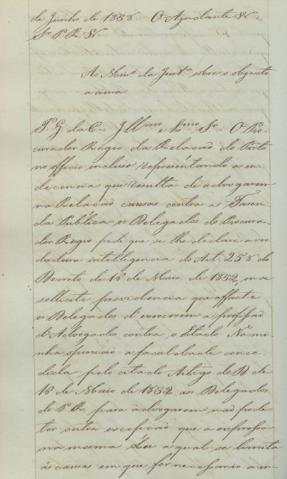 de Junho de 1858 O Ajudante
Ao Minº da Justª sobre o objecto
acima
P. G. da C. Illmo e Exmo Sr. O Pro
curador Regio da Relação do Porto
no officio incluso representando a in
decencia que resulta de advogarem
na Relação causas contra a Fazen
da Publica os Delegados do Procura
dor Regio pede que se lhe declare a ver
dadeira intelligencia do Art. 255 do
Decreto de 18 de Maio de 1832, ou se
sollicite providencia que affaste
os Delegados de exercerem a profissão
de Advogado contra o Estado Na mi
nha opinião a faculdade conce
dida pelo citado Artigo do D. de
18 de Maio de 1832 aos Delegados
para advogarem não pode
ter outra excepção que a expressa
na mesma Lei a qual se limita
ás causas em que for necessario a in